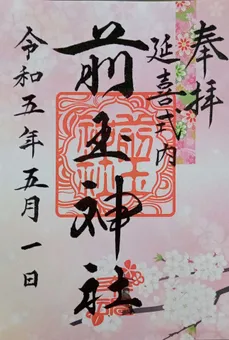 奉拝
延喜式内
前玉神社
令和五年五月一日